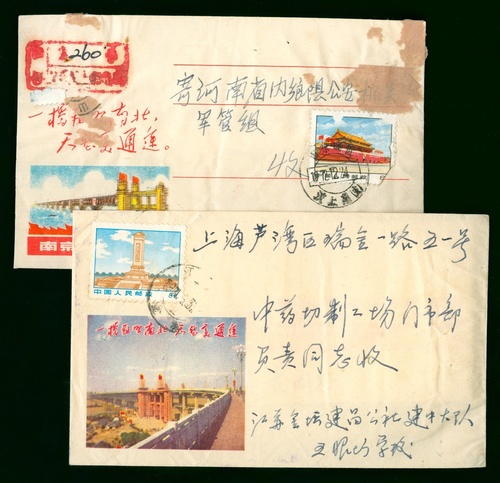 260
一桥飞架南北,
天堑变通途。
寄河南省内乡县公安机
军管组
收
南京
上海芦湾区瑞金一路五一号
中国人民邮政
8分
一桥飞架南北 天堑变通途
中药切制工场门市部
负责同志收
江苏金坛建昌公社建中大队